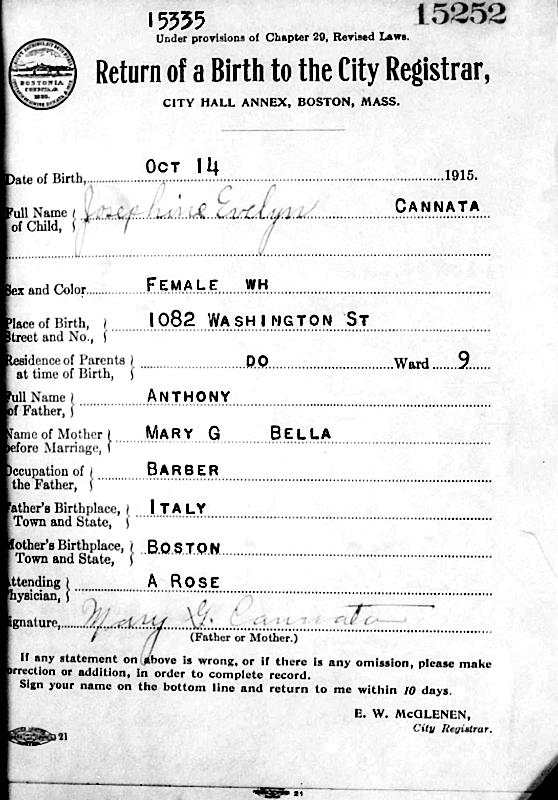 15335
15252
Under provisions of Chapter 29, Revised Laws.
BOSTONIA
CONDITA A.D.
1630.
Return of a Birth to the City Registrar,
CITY HALL ANNEX, BOSTON, MASS.
Date of Birth, OCT 14 1915.
Full Name of Child, Josephine Evelyn CANNATA
Sex and Color FEMALE WH
Place of Birth, Street and No., 1082 WASHINGTON ST
Residence of Parents at time of Birth, DO Ward 9
Full Name of Father, ANTHONY
Name of Mother before Marriage, MARY G BELLA
Occupation of the Father, BARBER
Father's Birthplace, Town and State, ITALY
Mother's Birthplace, Town and State, BOSTON
Attending Physician, A ROSE
Signature, Mary G. Cannata
(Father or Mother.)
If any statement on above is wrong, or if there is any omission, please make
correction or addition, in order to complete record.
Sign your name on the bottom line and return to me within 10 days.
E. W. McGLENEN,
City Registrar.
21
21